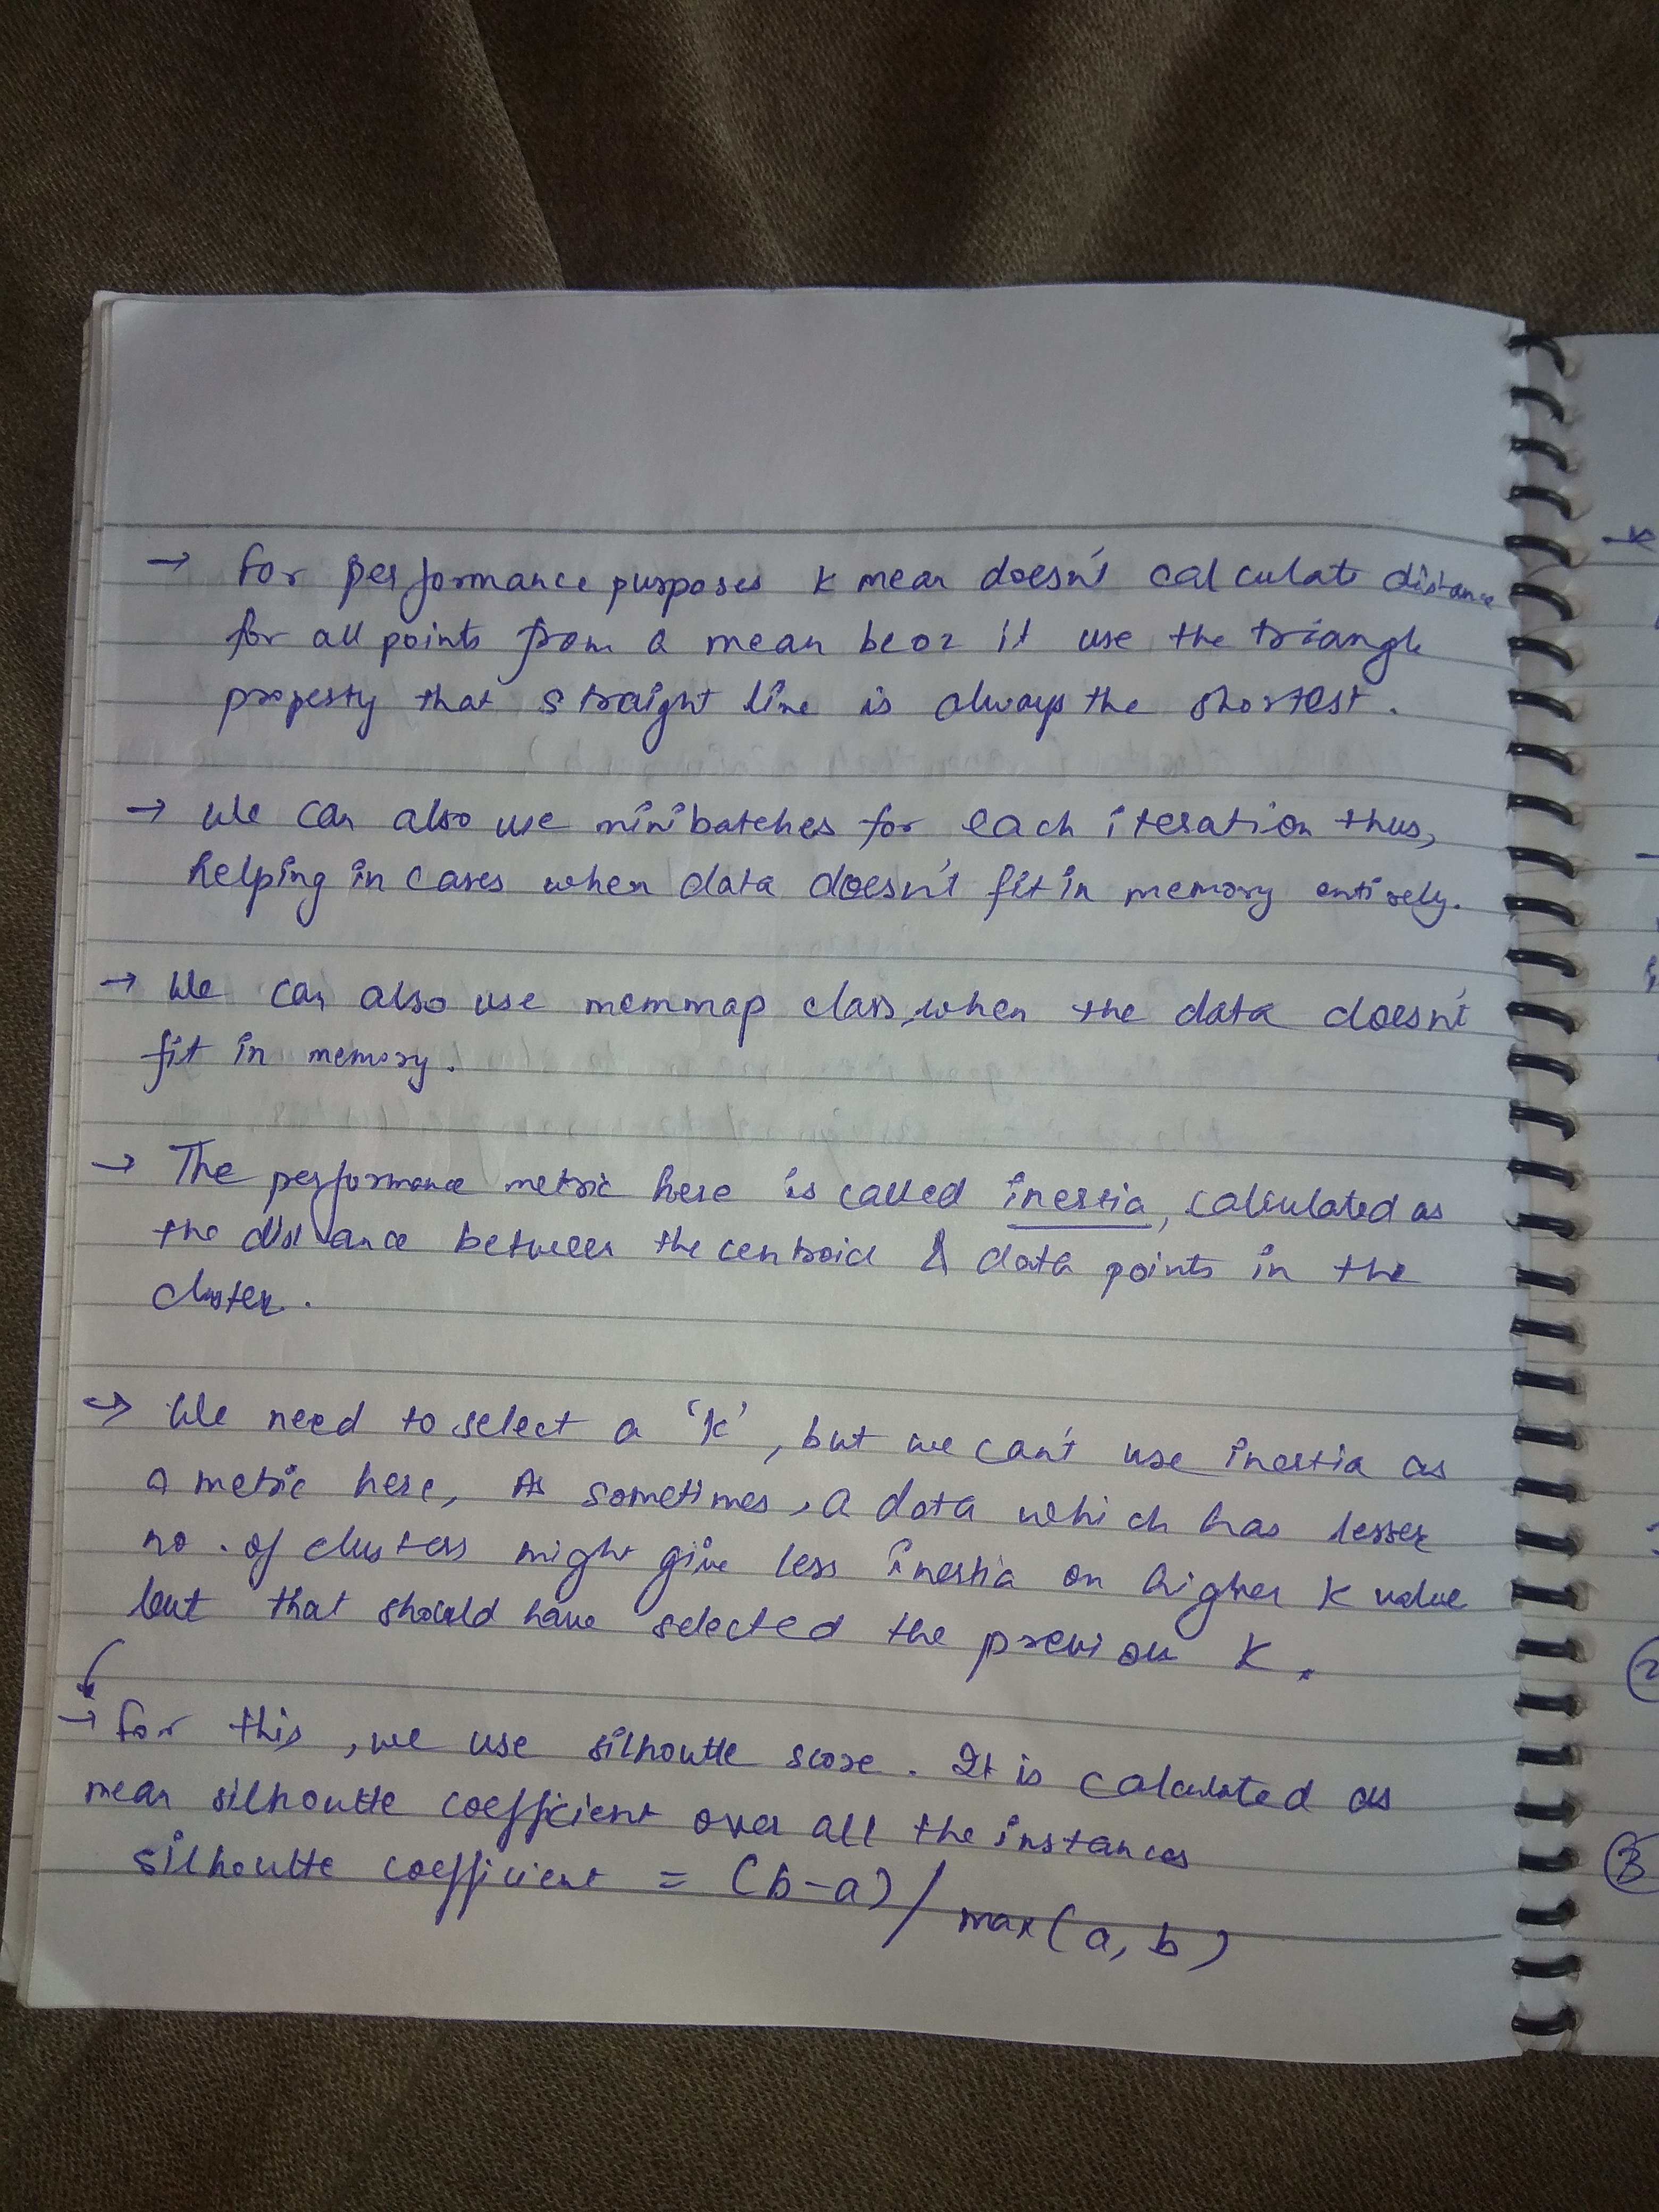 → for performance purposes k mean doesn't calculate distance
for all points from a mean becoz it use the triangle
property that straight line is always the shortest.
→ We can also use minibatches for each iteration thus,
helping in cases when data doesn't fit in memory entirely.
→ We can also use memmap class, when the data doesn't
fit in memory.
→ The performance metric here is called inertia, calculated as
the distance between the centroid & data points in the
cluster.
→ We need to select a 'k', but we can't use inertia as
a metric here, As sometimes, a data which has lesser
no. of clusters might give less inertia on higher K value
but that should have selected the previous K.
→ for this, we use silhoutte score. It is calculated as
mean silhoutte coefficient over all the instances
silhoutte coefficient = (b-a)/max(a, b)